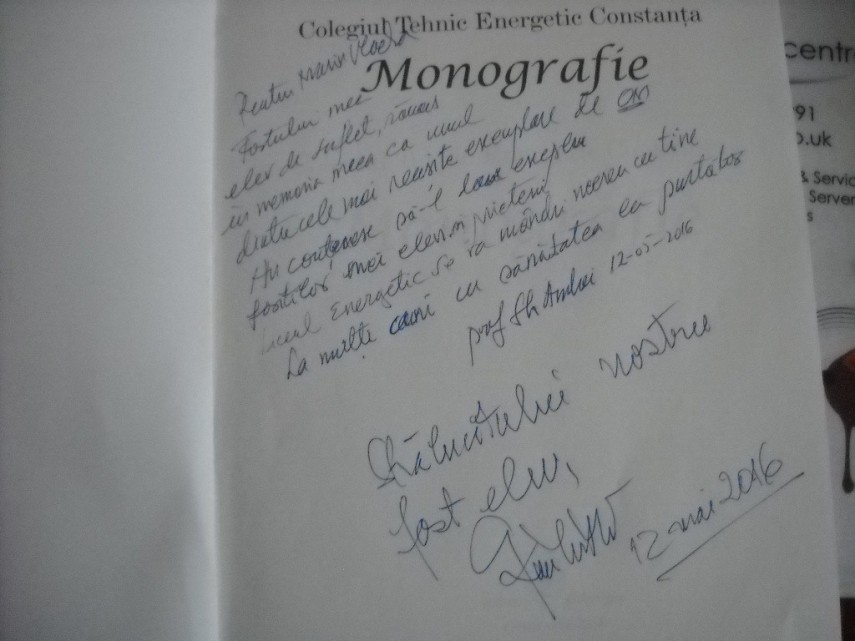 Colegiul Tehnic Energetic Constanța
Monografie
Pentru
Fostului meu
elev de suflet, rămas
în memoria mea ca unul
dintre cele mai reușite exemplare de om
Nu să-l exemplu
foștilor mei elevi și prieteni
Liceul Energetic se va mândri mereu cu tine
La mulți cu sănătatea ca purtător
prof Gh Andrei 12-05-2016
Strălucitului nostru
fost elev,
12 mai 2016
centr
91
o.uk
& Servic
Server
s